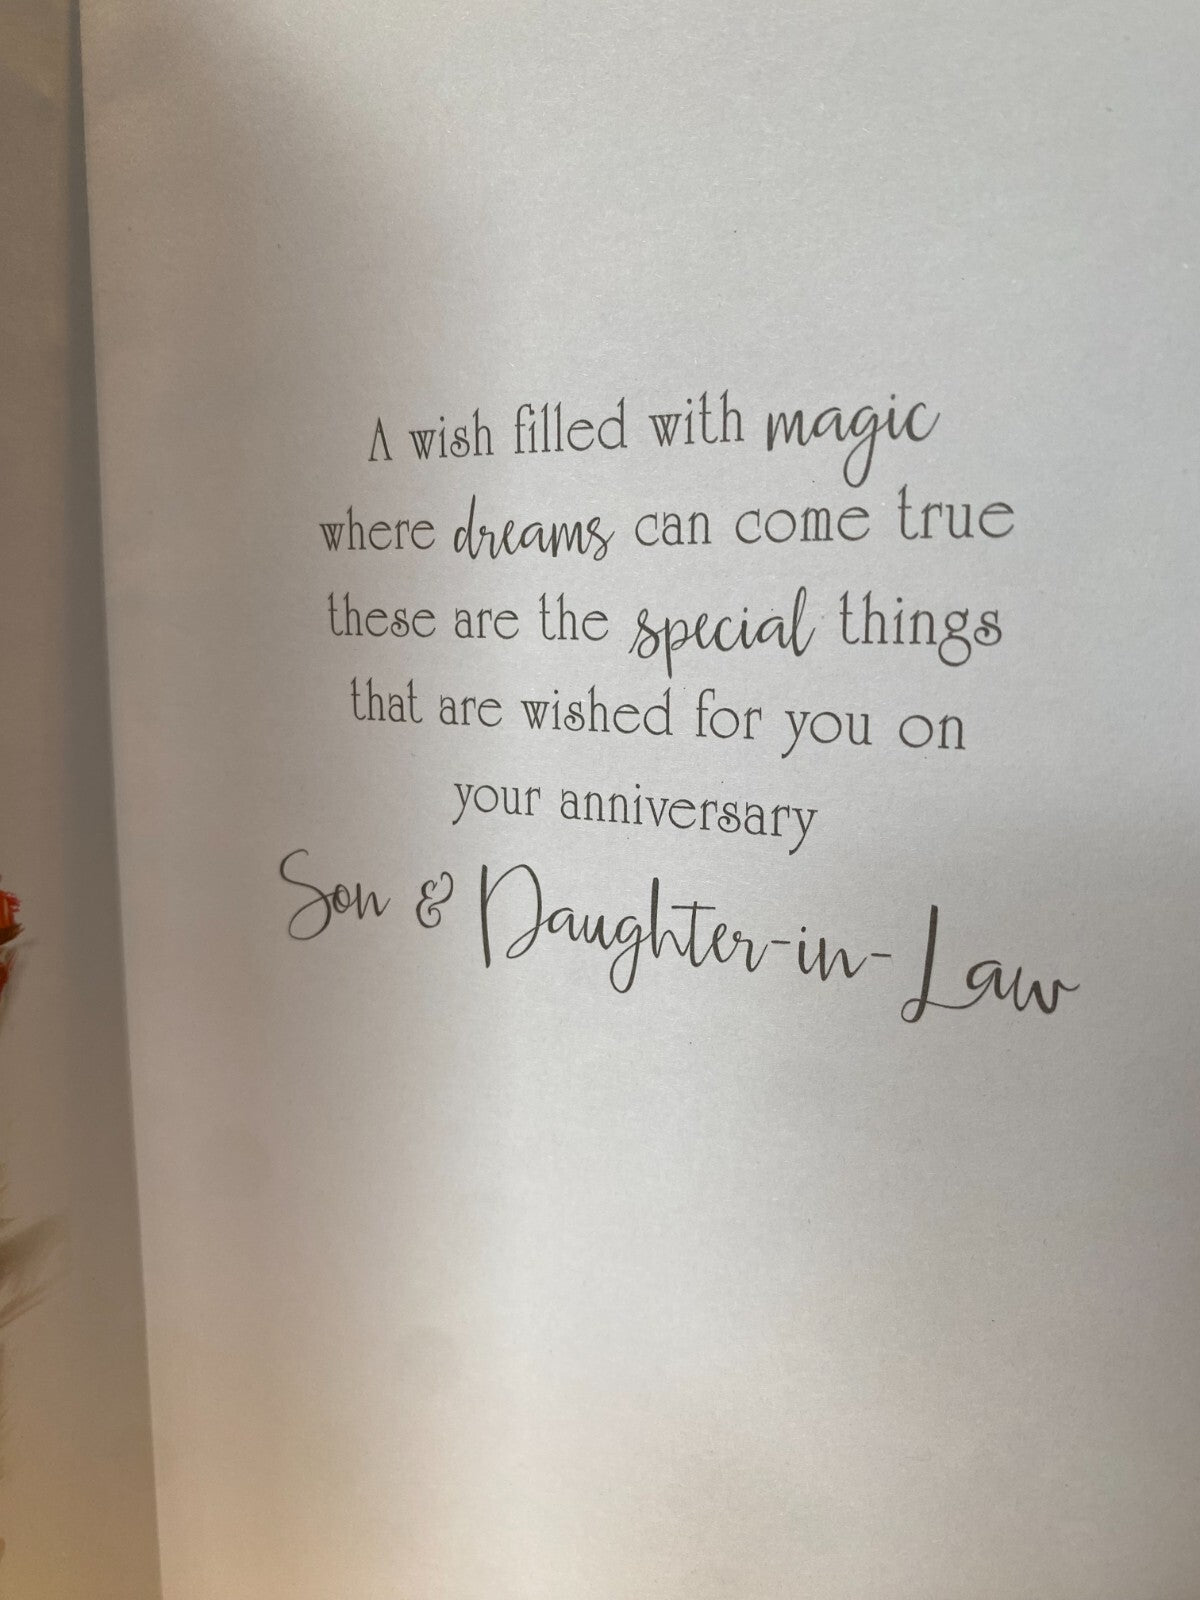 A wish filled with magic
where dreams can come true
these are the special things
that are wished for you on
your anniversary
Son & Daughter-in-Law